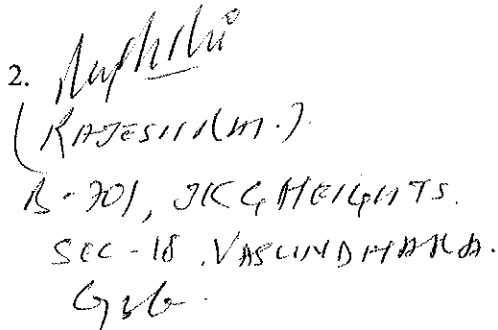 2.
(RAJESH KM.)
B-701, JKG HEIGHTS.
SEC-18, VASUNDHARA.
GZB.